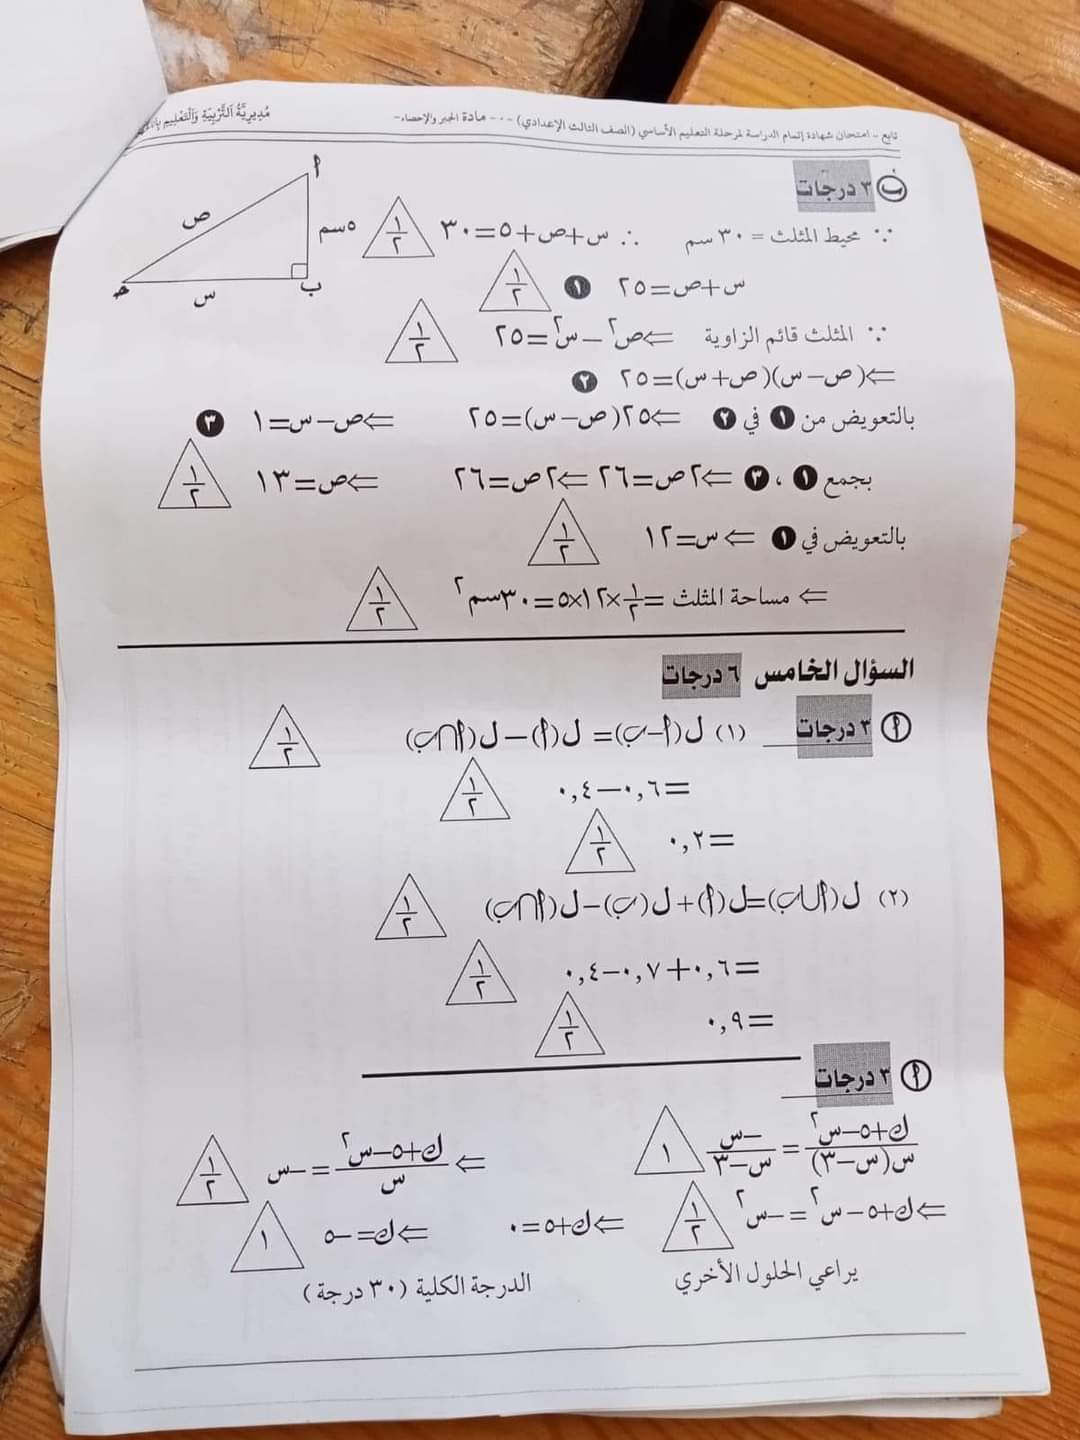 تابع - امتحان شهادة إتمام الدراسة لمرحلة التعليم الأساسي (الصف الثالث الإعدادي) - ٠ - مادة الجبر والإحصاء - مُدِيرِيَّةُ اَلتَّرْبِيَةِ وَاَلْتَعْلِيمِ
ب ٣ درجات
∵ محيط المثلث = ٣٠ سم ∴ س+ص+٥=٣٠ ١/٢
س+ص=٢٥ ١ ١/٢
∵ المثلث قائم الزاوية ⇐ص٢–س٢=٢٥ ١/٢
⇐(ص–س)(ص+س)=٢٥ ٢
بالتعويض من ١ في ٢ ⇐٢٥(ص–س)=٢٥ ⇐ص–س=١ ٣
بجمع ١ ، ٣ ⇐٢ص=٢٦ ⇐٢ص=٢٦ ⇐ص=١٣ ١/٢
بالتعويض في ١ ⇐س=١٢ ١/٢
⇐ مساحة المثلث =١/٢×١٢×٥=٣٠سم٢ ١/٢
أ
ص
٥سم
ب
س
حـ
السؤال الخامس ٦ درجات
أ ٣ درجات (١) ل(أ–ب)= ل(أ)–ل(أ∩ب) ١/٢
=٠,٦–٠,٤ ١/٢
=٠,٢ ١/٢
(٢) ل(أ∪ب)=ل(أ)+ل(ب)–ل(أ∩ب) ١/٢
=٠,٦+٠,٧–٠,٤ ١/٢
=٠,٩ ١/٢
أ ٣ درجات
ك+٥–س٢/س(س–٣) = –س/س–٣ ١ ⇐ ك+٥–س٢/س = –س ١/٢
⇐ك+٥–س٢=–س٢ ١/٢ ⇐ك+٥=٠ ⇐ك=–٥ ١
يراعي الحلول الأخري الدرجة الكلية (٣٠ درجة)